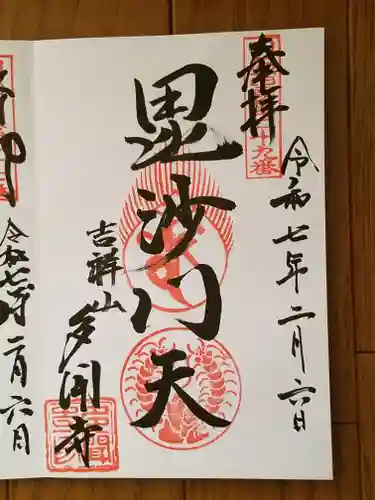 奉拝
令和七年二月六日
毘沙門天
吉祥山
多聞寺
令和七年二月六日